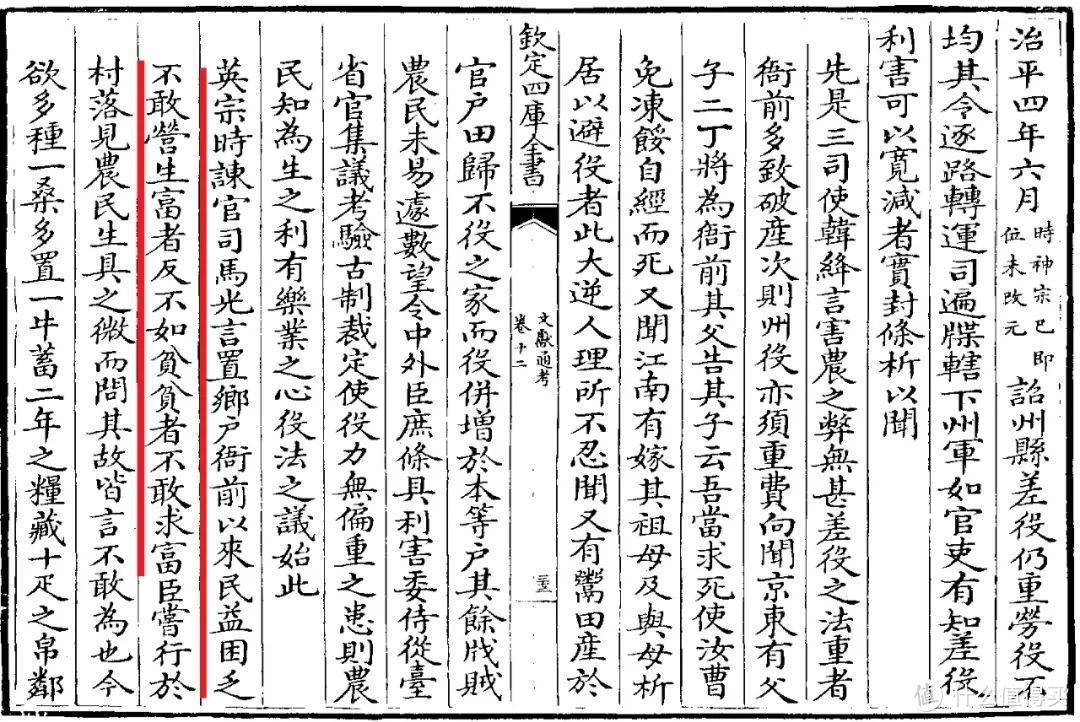 治平四年六月時神宗已即位未改元詔州縣差役仍重勞役不
均其令逐路轉運司遍牒轄下州軍如官吏有知差役
利害可以寬減者實封條析以聞
先是三司使韓絳言害農之弊無甚差役之法重者
衙前多致破產次則州役亦須重費向聞京東有父
子二丁將為衙前其父告其子云吾當求死使汝曹
免凍餒自經而死又聞江南有嫁其祖母及與母析
居以避役者此大逆人理所不忍聞又有鬻田產於
欽定四庫全書
文獻通考
卷十二
官戶田歸不役之家而役併增於本等戶其餘戕賊
農民未易遽數望令中外臣庶條具利害委侍從臺
省官集議考驗古制裁定使役力無偏重之患則農
民知為生之利有樂業之心役法之議始此
英宗時諫官司馬光言置鄉戶衙前以來民益困乏
不敢營生富者反不如貧貧者不敢求富臣嘗行於
村落見農民生具之微而問其故皆言不敢為也今
欲多種一桑多置一牛蓄二年之糧藏十疋之帛鄰
值 什么值得买